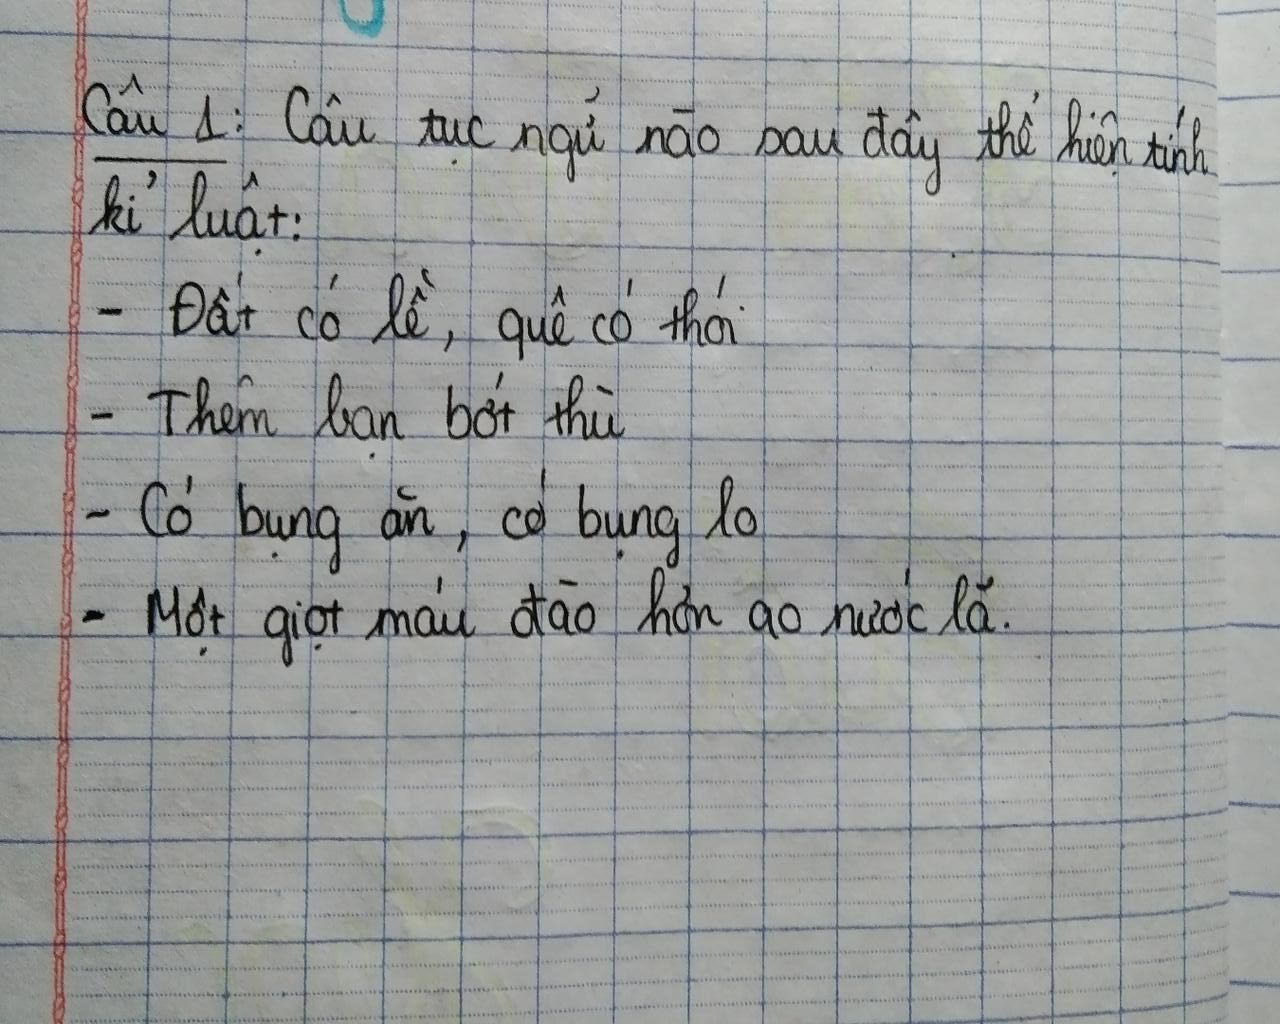 Câu 1: Câu tục ngữ nào sau đây thể hiện tính
kỉ luật:
- Đất có lề, quê có thói
- Thêm bạn bớt thù
- Có bụng ăn, có bụng lo
- Một giọt máu đào hơn ao nước lã.